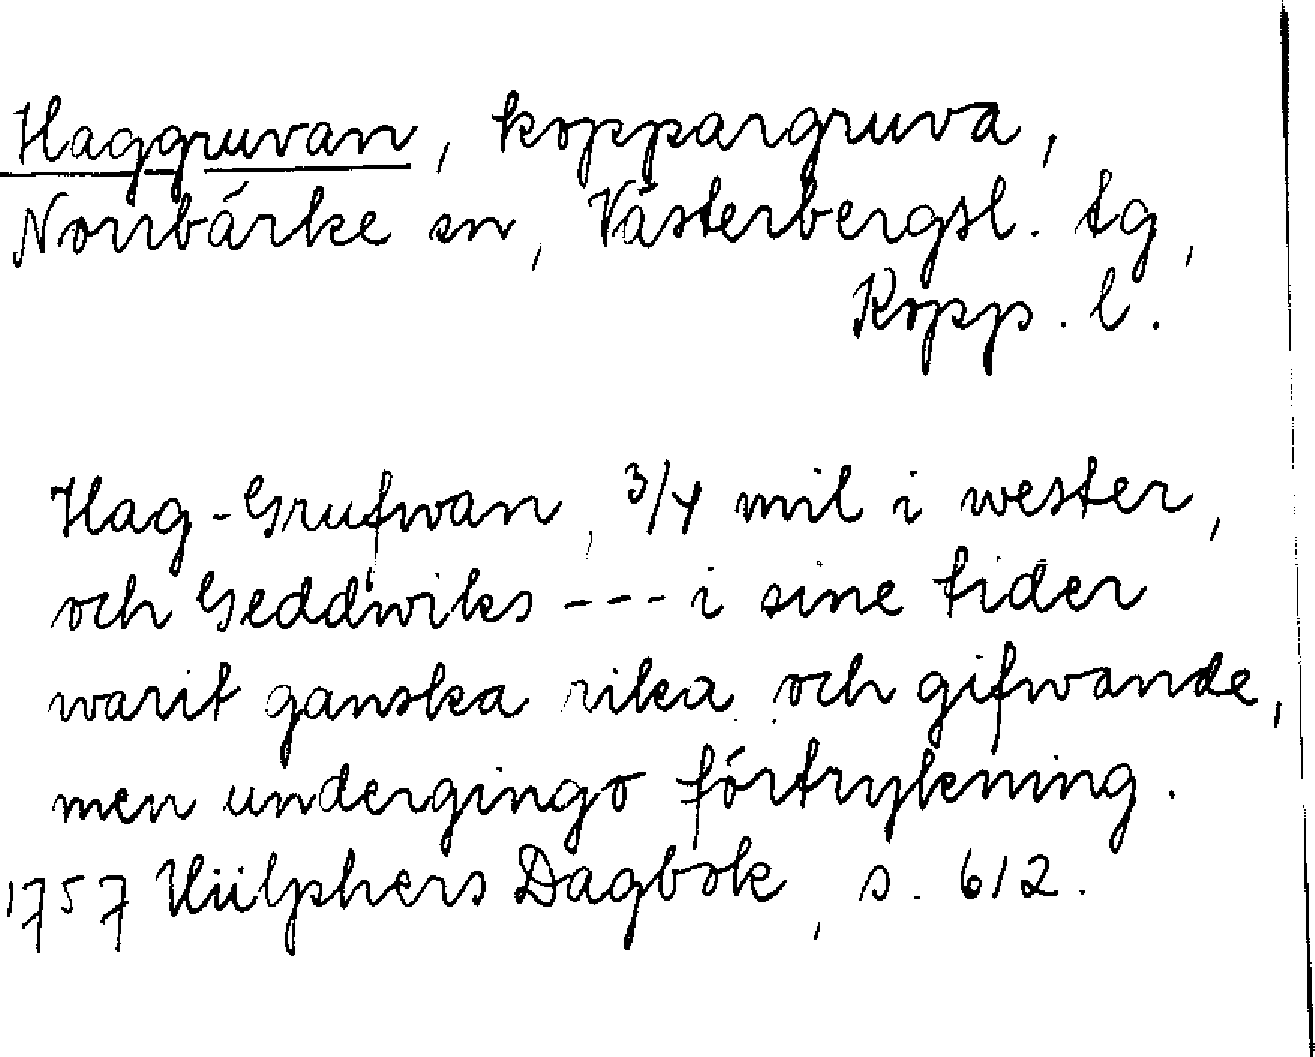 Haggruvan, koppargruva,
Norrbärke sn, Västerbergsl. tg,
Kopp. l.
Hag-Grufwan, 3/4 mil i wester,
och Geddwiks --- i sine tider
warit ganska rika och gifwande,
men undergingo förtrykning.
1757 Hülphers Dagbok, s. 612.